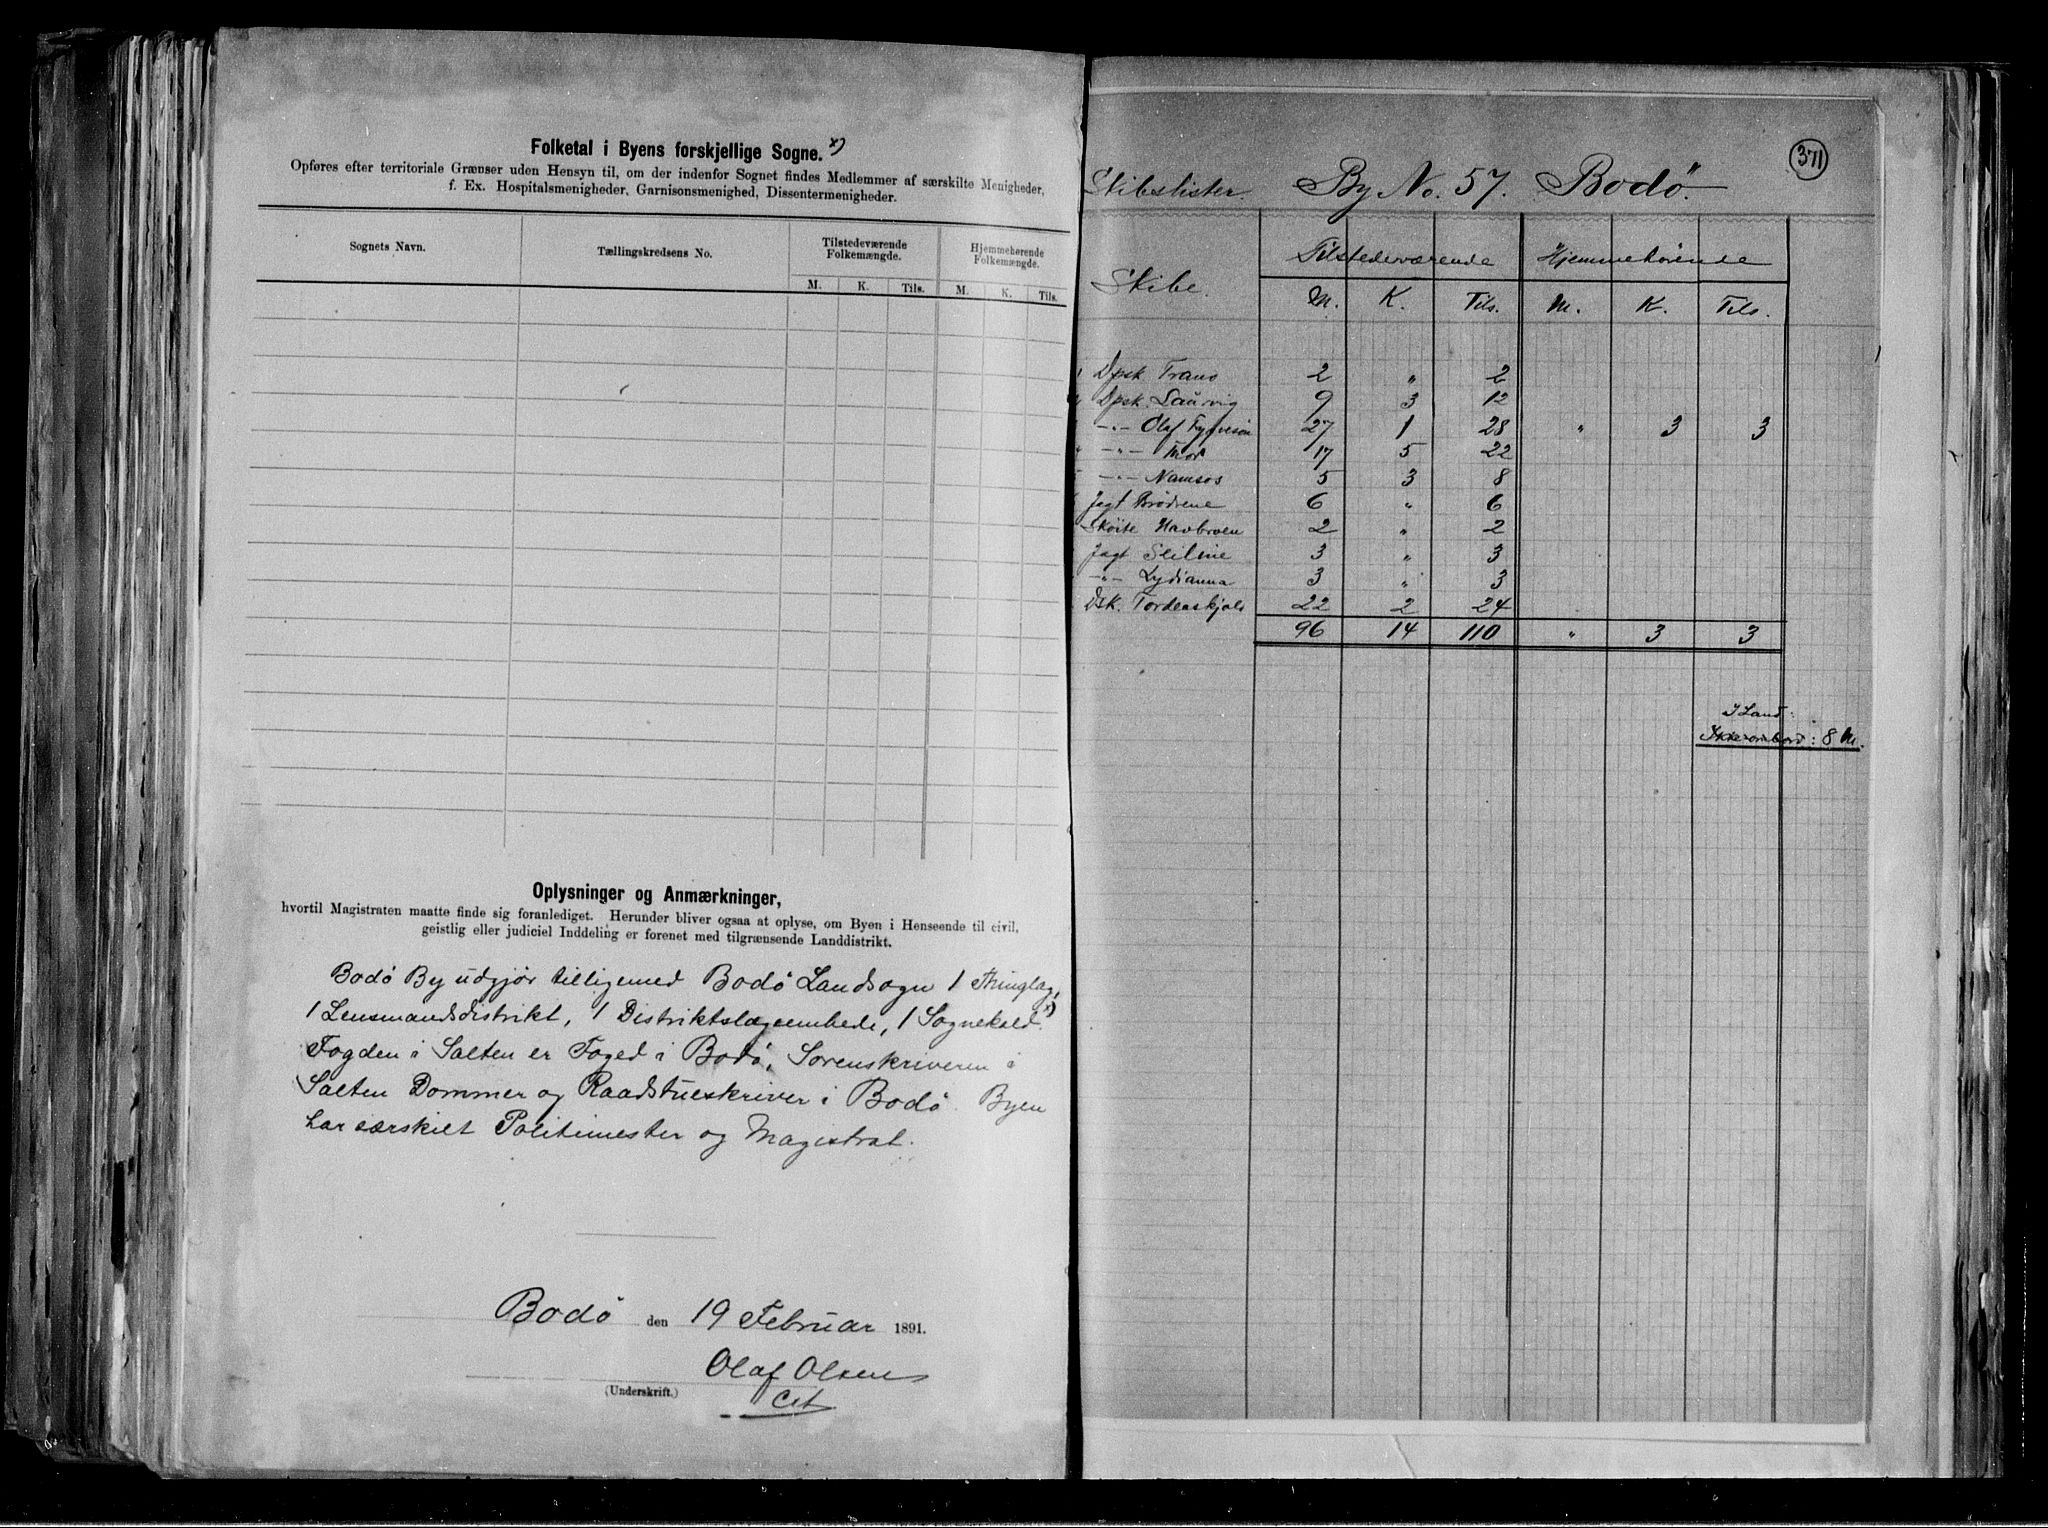 Folketal i Byens forskjellige Sogne. x)
Opføres efter territoriale Grænser uden Hensyn til, om der indenfor Sognet findes Medlemmer af særskilte Menigheder,
f. Ex. Hospitalsmenigheder, Garnisonsmenighed, Dissentermenigheder.
Sognets Navn. Tællingskredsens No. Tilstedeværende Folkemængde. Hjemmehørende Folkemængde.
M. K. Tils. M. K. Tils.
Oplysninger og Anmærkninger,
hvortil Magistraten maatte finde sig foranlediget. Herunder bliver ogsaa at oplyse, om Byen i Henseende til civil,
geistlig eller judiciel Inddeling er forenet med tilgrænsende Landdistrikt.
Bodø By udgjør tilligemed Bodø Landsogn 1 Thinglag,
1 Lensmandsdistrikt, 1 Distriktslægeembede, 1 Sognekald. x)
Fogden i Salten er Foged i Bodø, Sorenskriveren i
Salten Dommer og Raadstueskriver i Bodø. Byen
har særskilt Politimester og Magistrat.
Bodø den 19 Februar 1891.
Olaf Olsen
(Underskrift.)
Cst
371
Skibslister. By No. 57. Bodø.
Skibe. Tilstedeværende Hjemmehørende
M. K. Tils. M. K. Tils.
Dpsk. Trano 2 " 2
Dpsk. Laurvig 9 3 12
-"- Olaf Tygvesøn 27 1 28 " 3 3
-"- Mor 17 5 22
-"- Namsos 5 3 8
Jagt Brødrene 6 " 6
Skøite Havbroen 2 " 2
Jagt Seline 3 " 3
-"- Lydianna 3 " 3
Dsk. Tordenskjold 22 2 24
96 14 110 " 3 3
I Land:
Ikke ombord: 8 M.